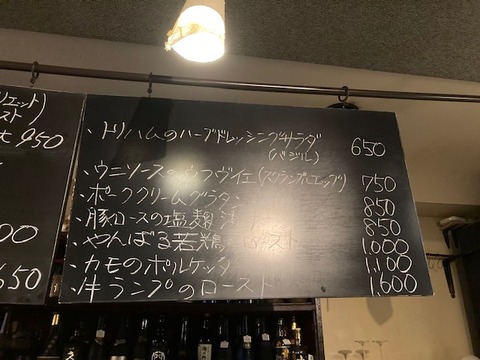 リエット)
スト
大 950
00
650
・トリハムのハーブドレッシングサラダ 650
(バジル)
・ウニソースの ヴイエ(スクランブルエッグ) 750
・ポーククリームグラタン 850
・豚ロースの塩麹漬 850
・やんばる若鶏 ロースト 1,000
・カモのポルケッタ 1,100
・牛ランプのロースト 1,600